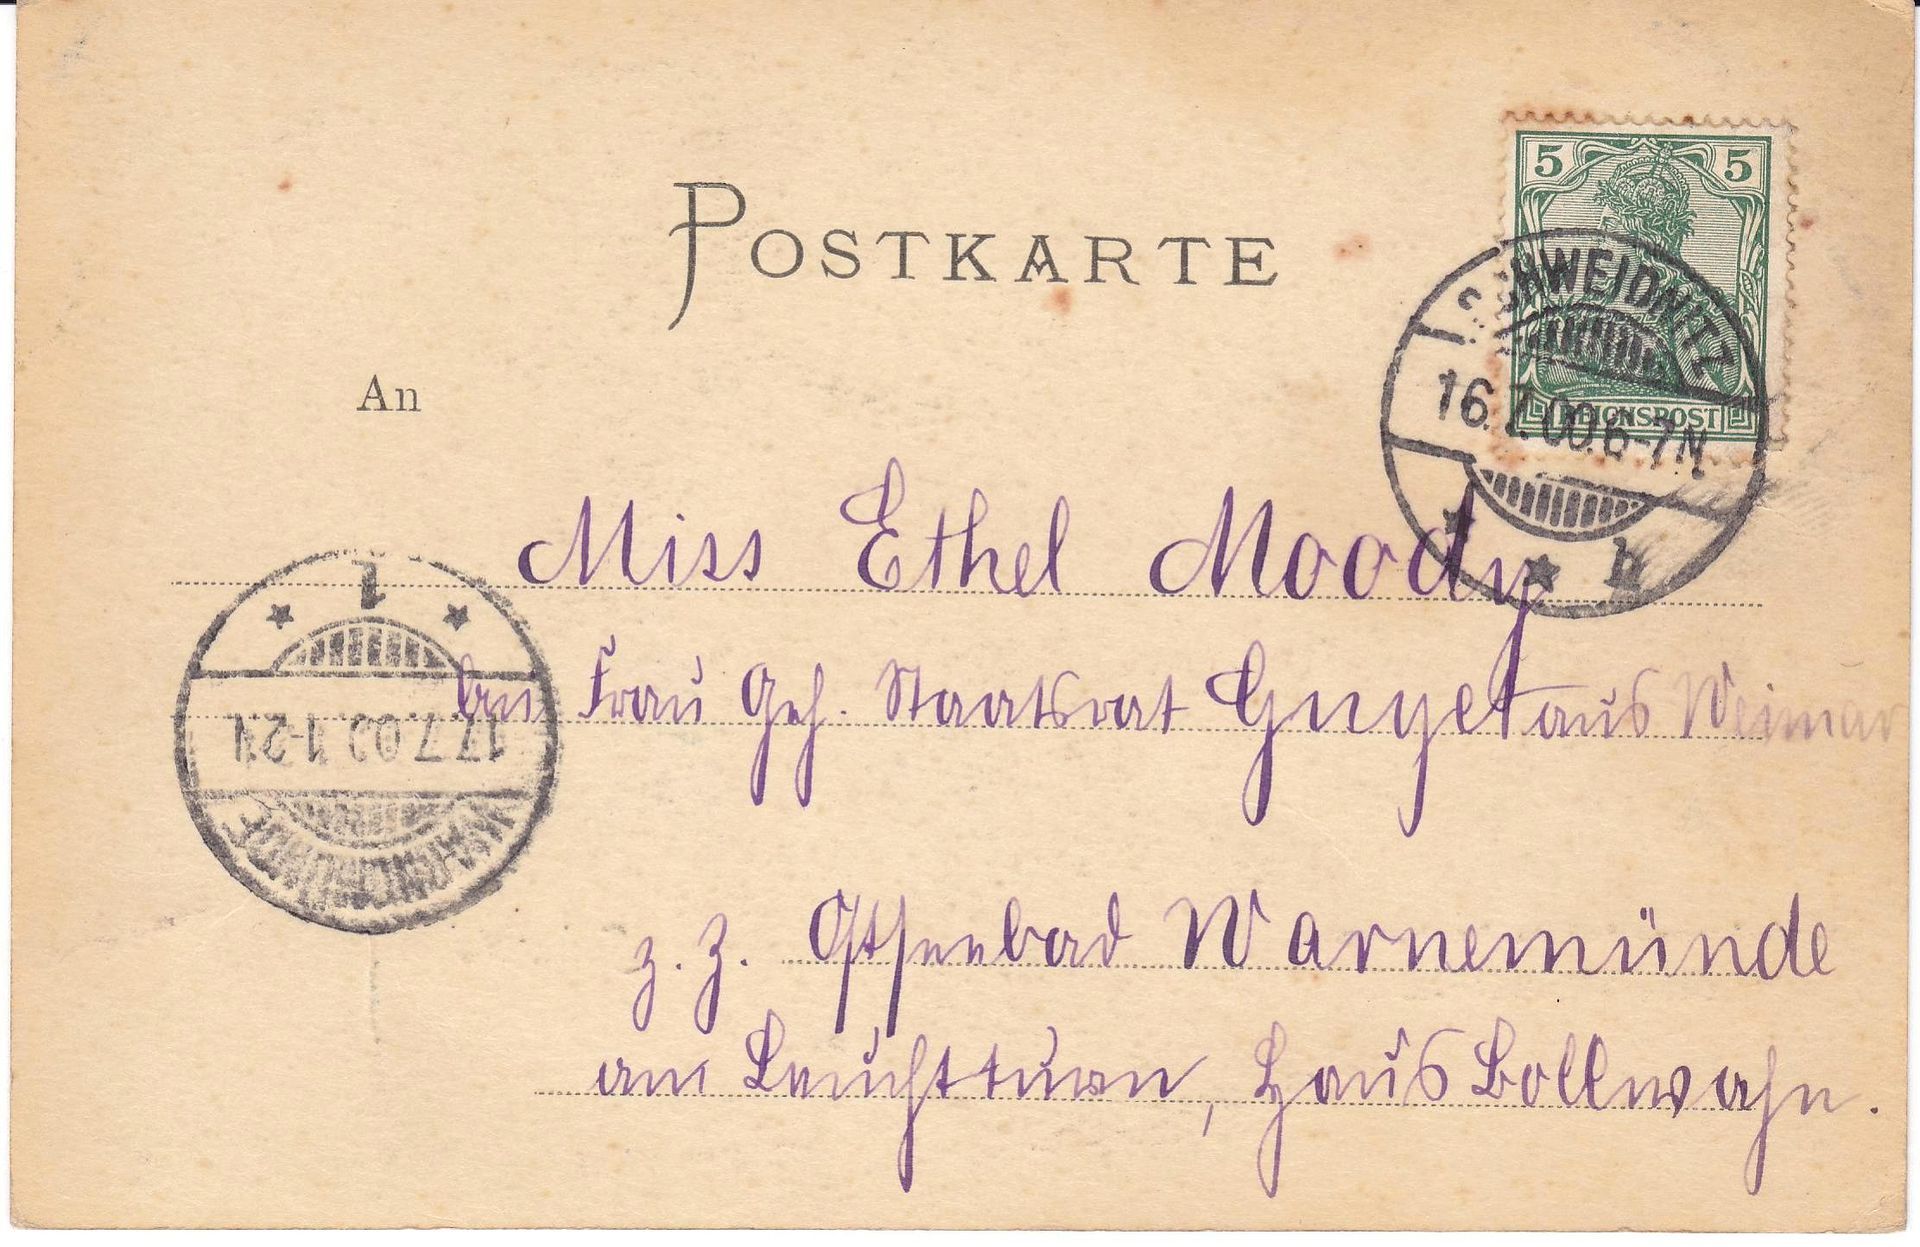 POSTKARTE
5 5
SCHWEIDNITZ
16.7.00.6-7N.
REICHSPOST
* * h
An
Miss Ethel Moody
bei Frau Geh. Staatsrat Guyet aus Weimar
z. Z. Ostseebad Warnemünde
am Leuchtturm, Haus Bollwahn.
* 1 *
17.7.00.1-2N
WARNEMÜNDE